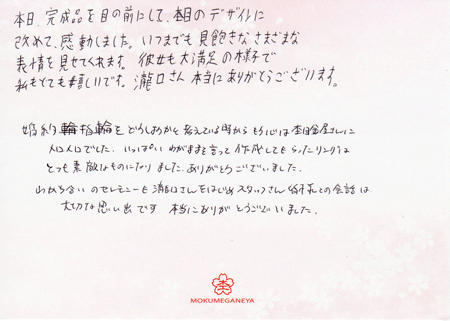 本日、完成品を目の前にして、木目のデザインに
改めて、感動しました。いつまでも見飽きなさまざまな
表情を見せてくれます。彼女も大満足の様子で
私もとても嬉しいです。瀧口さん本当にありがとうございます。
婚約指輪をどうしようかと考えている時から もう心は杢目金屋さんに
メロメロでした。いっぱいわがままを言って作成してもらったリングは
とっても素敵なものになりました。ありがとうございました。
わかちあいのセレモニーも 瀧口さんをはじめスタッフさん との会話は
大切な思い出です 本当にありがとうございました。
MOKUMEGANEYA